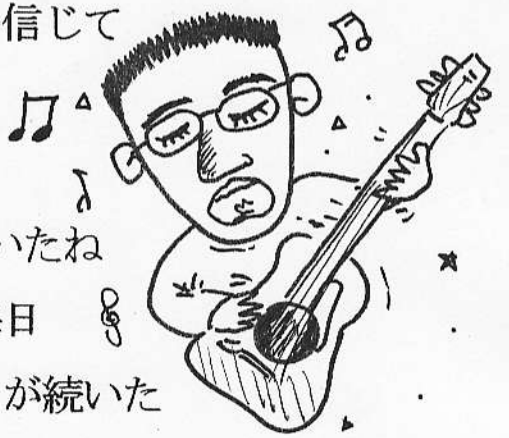 信じて
いたね
日
が続いた